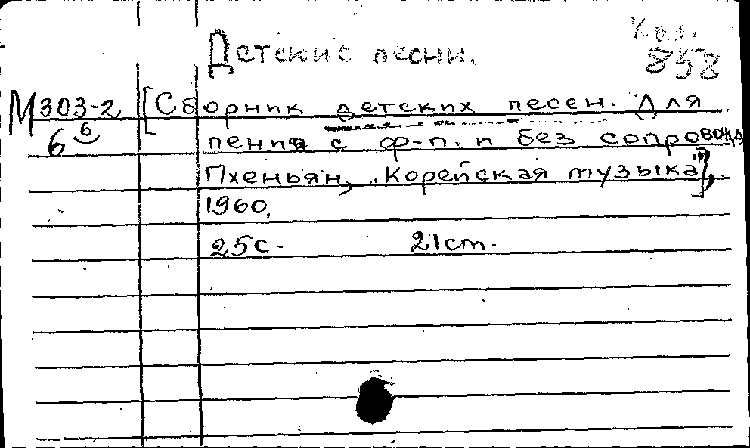 Детские песни.
858
М 303-2 [Сборник детских песен. Для
6 6 пения с ф-п. и без сопровожд
Пхеньян, „Корейская музыка"],
1960.
25с. 21см.